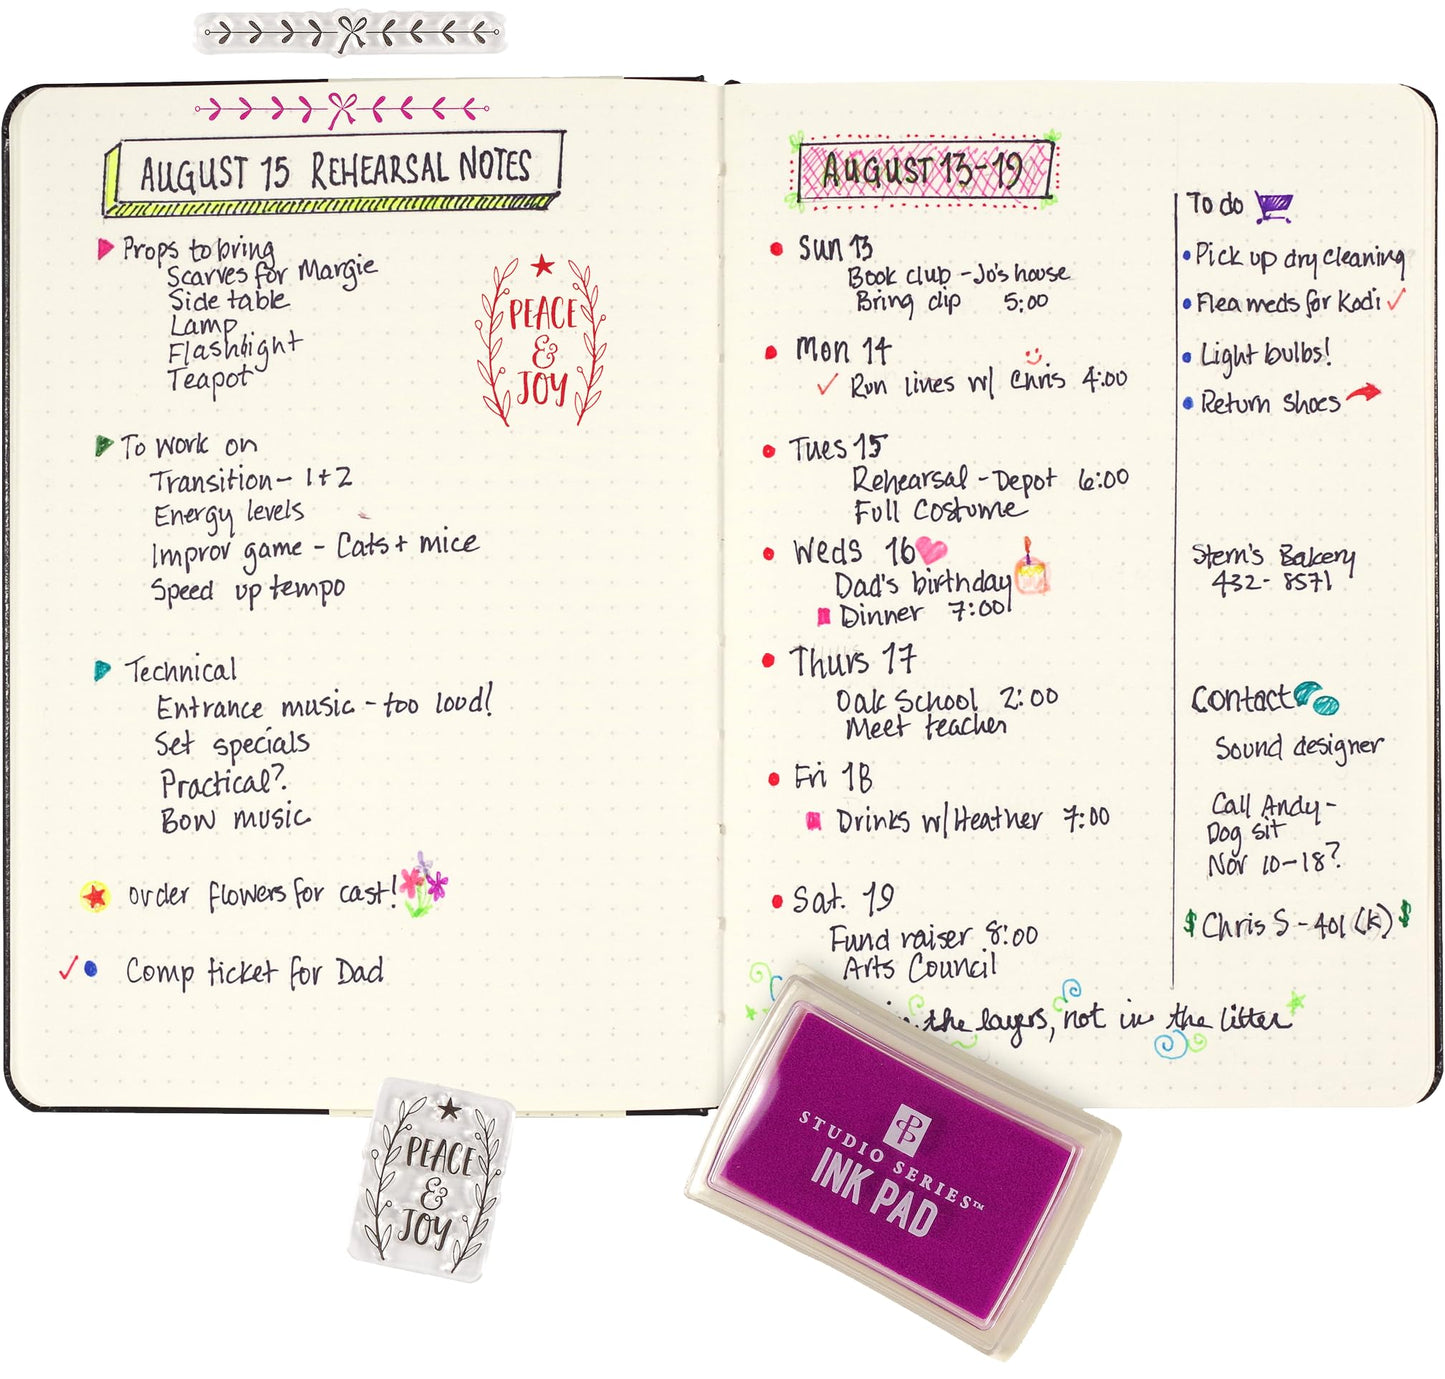 AUGUST 15 REHEARSAL NOTES
Props to bring
Scarves for Margie
Side table
Lamp
Flashlight
Teapot
PEACE
&
JOY
To work on
Transition - 1+2
Energy levels
Improv game - Cats + mice
Speed up tempo
Technical
Entrance music - too loud!
Set specials
Practical?
Bow music
order flowers for cast!
Comp ticket for Dad
AUGUST 13-19
Sun 13
Book club - Jo's house
Bring dip 5:00
Mon 14
Run lines w/ Chris 4:00
Tues 15
Rehearsal - Depot 6:00
Full Costume
Weds 16
Dad's birthday
Dinner 7:00
Thurs 17
Oak School 2:00
Meet teacher
Fri 18
Drinks w/ Heather 7:00
Sat. 19
Fund raiser 8:00
Arts Council
in the layers, not in the litter
To do
Pick up dry cleaning
Flea meds for Kodi
Light bulbs!
Return shoes
Stern's Bakery
432-8571
Contact
Sound designer
Call Andy -
Dog sit
Nov 10-18?
$ Chris S - 401(k) $
PEACE
&
JOY
STUDIO SERIES™
INK PAD